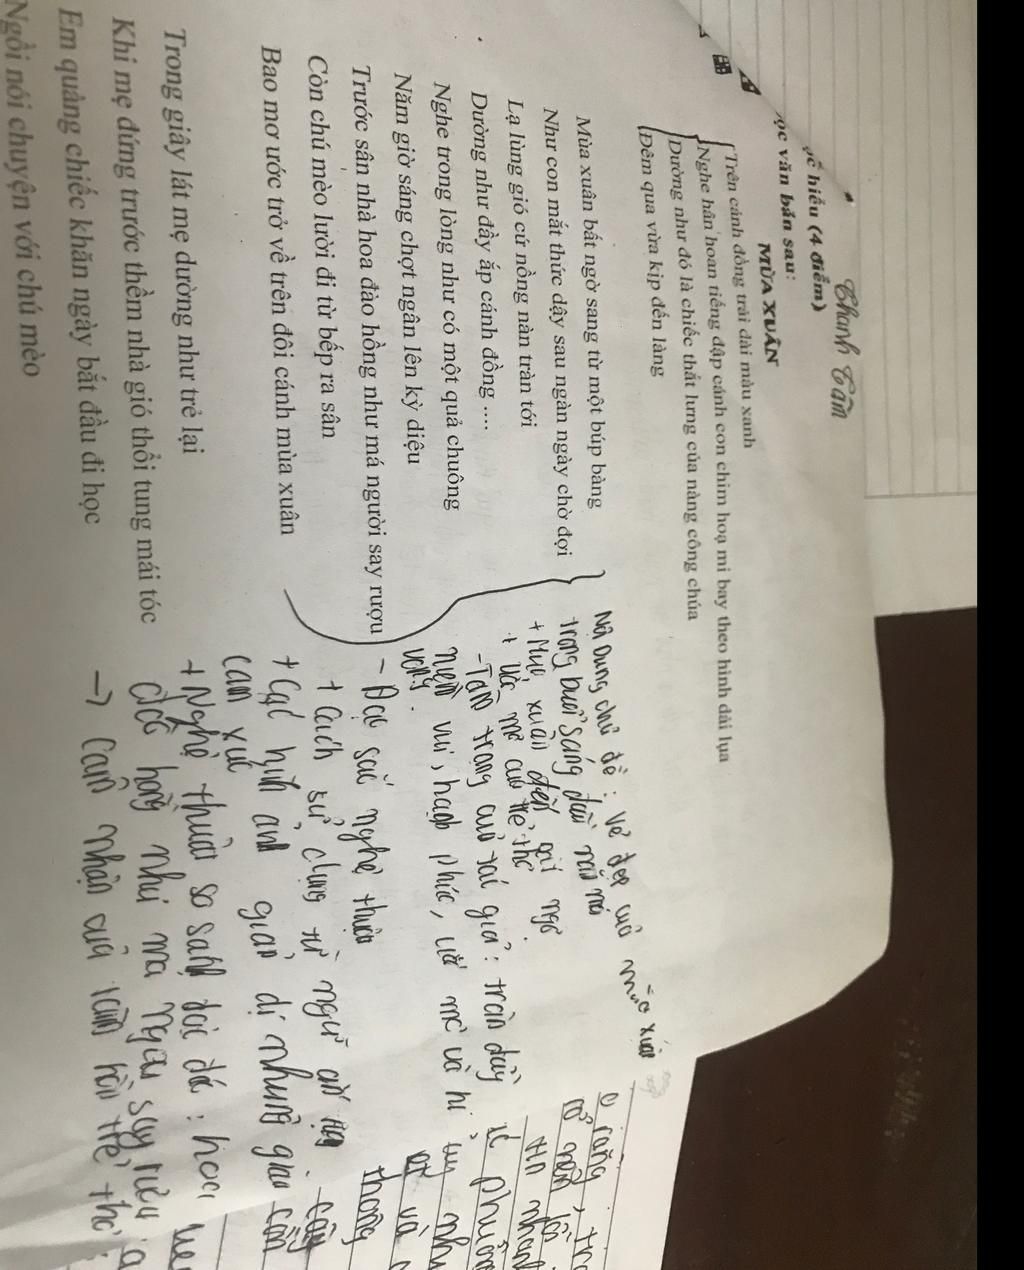 Thanh Tâm
ọc hiểu (4 điểm)
ọc văn bản sau:
MÙA XUÂN
Trên cánh đồng trải dài màu xanh
Nghe hân hoan tiếng đập cánh con chim hoạ mi bay theo hình dải lụa
Dường như đó là chiếc thắt lưng của nàng công chúa
Đêm qua vừa kịp đến làng
Mùa xuân bất ngờ sang từ một búp bàng
Như con mắt thức dậy sau ngàn ngày chờ đợi
Lạ lùng gió cứ nồng nàn tràn tới
Dường như đầy ắp cánh đồng ....
Nghe trong lòng như có một quả chuông
Năm giờ sáng chợt ngân lên kỳ diệu
Trước sân nhà hoa đào hồng như má người say rượu
Còn chú mèo lười đi từ bếp ra sân
Bao mơ ước trở về trên đôi cánh mùa xuân
Trong giây lát mẹ dường như trẻ lại
Khi mẹ đứng trước thềm nhà gió thổi tung mái tóc
Em quàng chiếc khăn ngày bắt đầu đi học
Ngồi nói chuyện với chú mèo
Nội dung chủ đề : Vẻ đẹp của mùa xuân
trong buổi sáng đầu năm mới
+ Mùa xuân đến bất ngờ
+ ước mơ của trẻ thơ
- Tâm trạng của tác giả : tràn đầy
niềm vui, hạnh phúc, ước mơ và hi
vọng.
- Đặc sắc nghệ thuật
+ Cách sử dụng từ ngữ
+ Các hình ảnh giản dị nhưng giàu
cảm xúc
+ Nghệ thuật so sánh độc đáo : hoa
đào hồng như má người say rượu
-> Cảm nhận của tâm hồn trẻ thơ